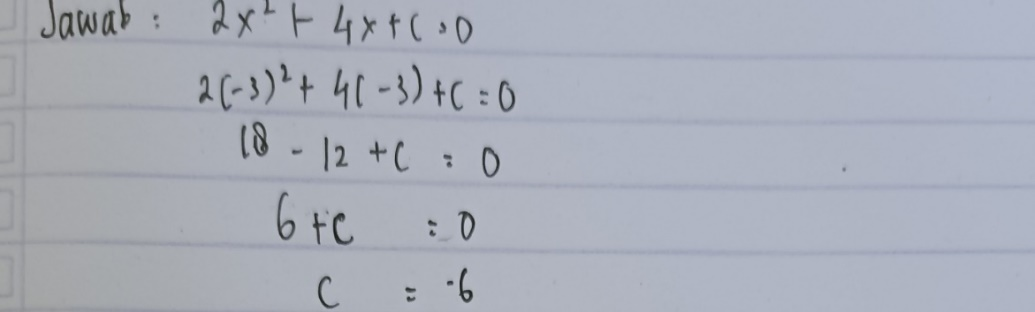 Jawab : 2x² + 4x + C = 0
2(-3)² + 4(-3) + C = 0
18 - 12 + C = 0
6 + C = 0
C = -6